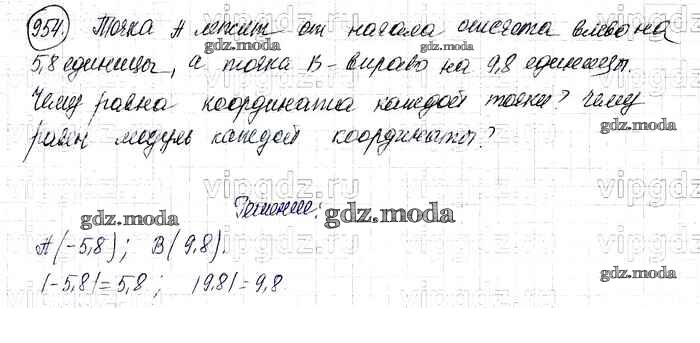 954. Точка А лежит от начала отсчета влево на
5,8 единицы, а точка В - вправо на 9,8 единицы.
Чему равна координата каждой точки? Чему
равен модуль каждой координаты?
Решение:
А(-5,8); В(9,8).
|-5,8|=5,8; |9,8|=9,8
gdz.moda
vipgdz.ru